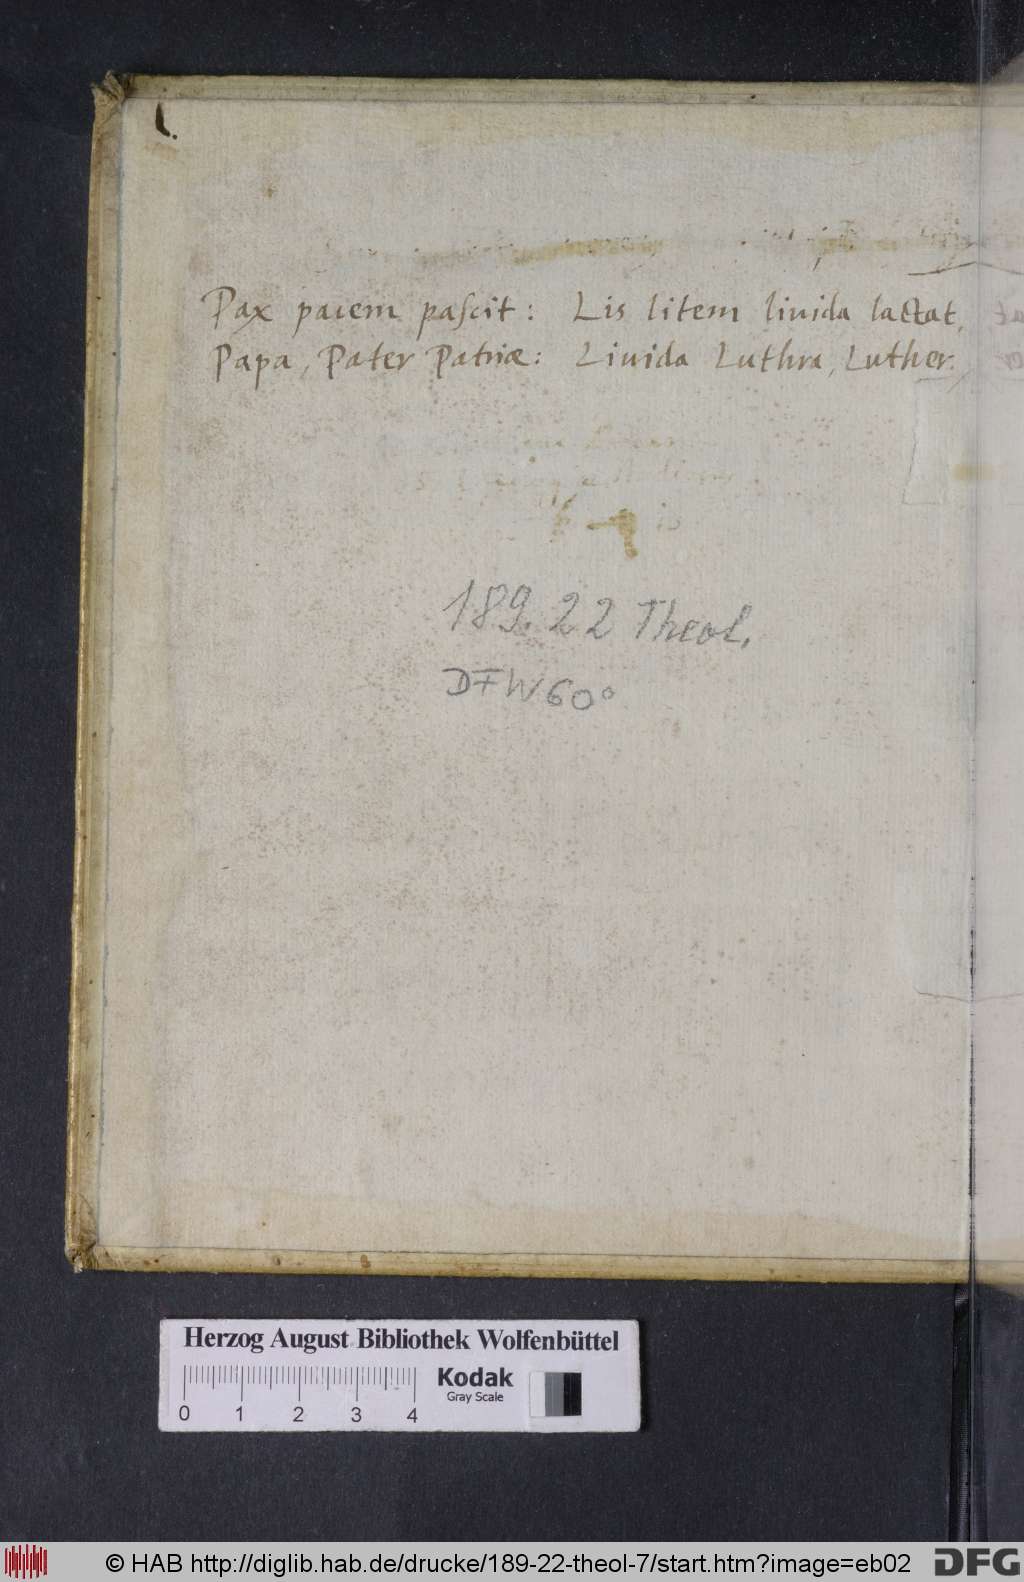 Pax pacem pascit: Lis litem liuida lactat,
Papa, Pater Patriæ: Liuida Luthra, Luther.
189.22 Theol.
DFW60°
Herzog August Bibliothek Wolfenbüttel
Kodak
Gray Scale
0 1 2 3 4
© HAB http://diglib.hab.de/drucke/189-22-theol-7/start.htm?image=eb02
DFG